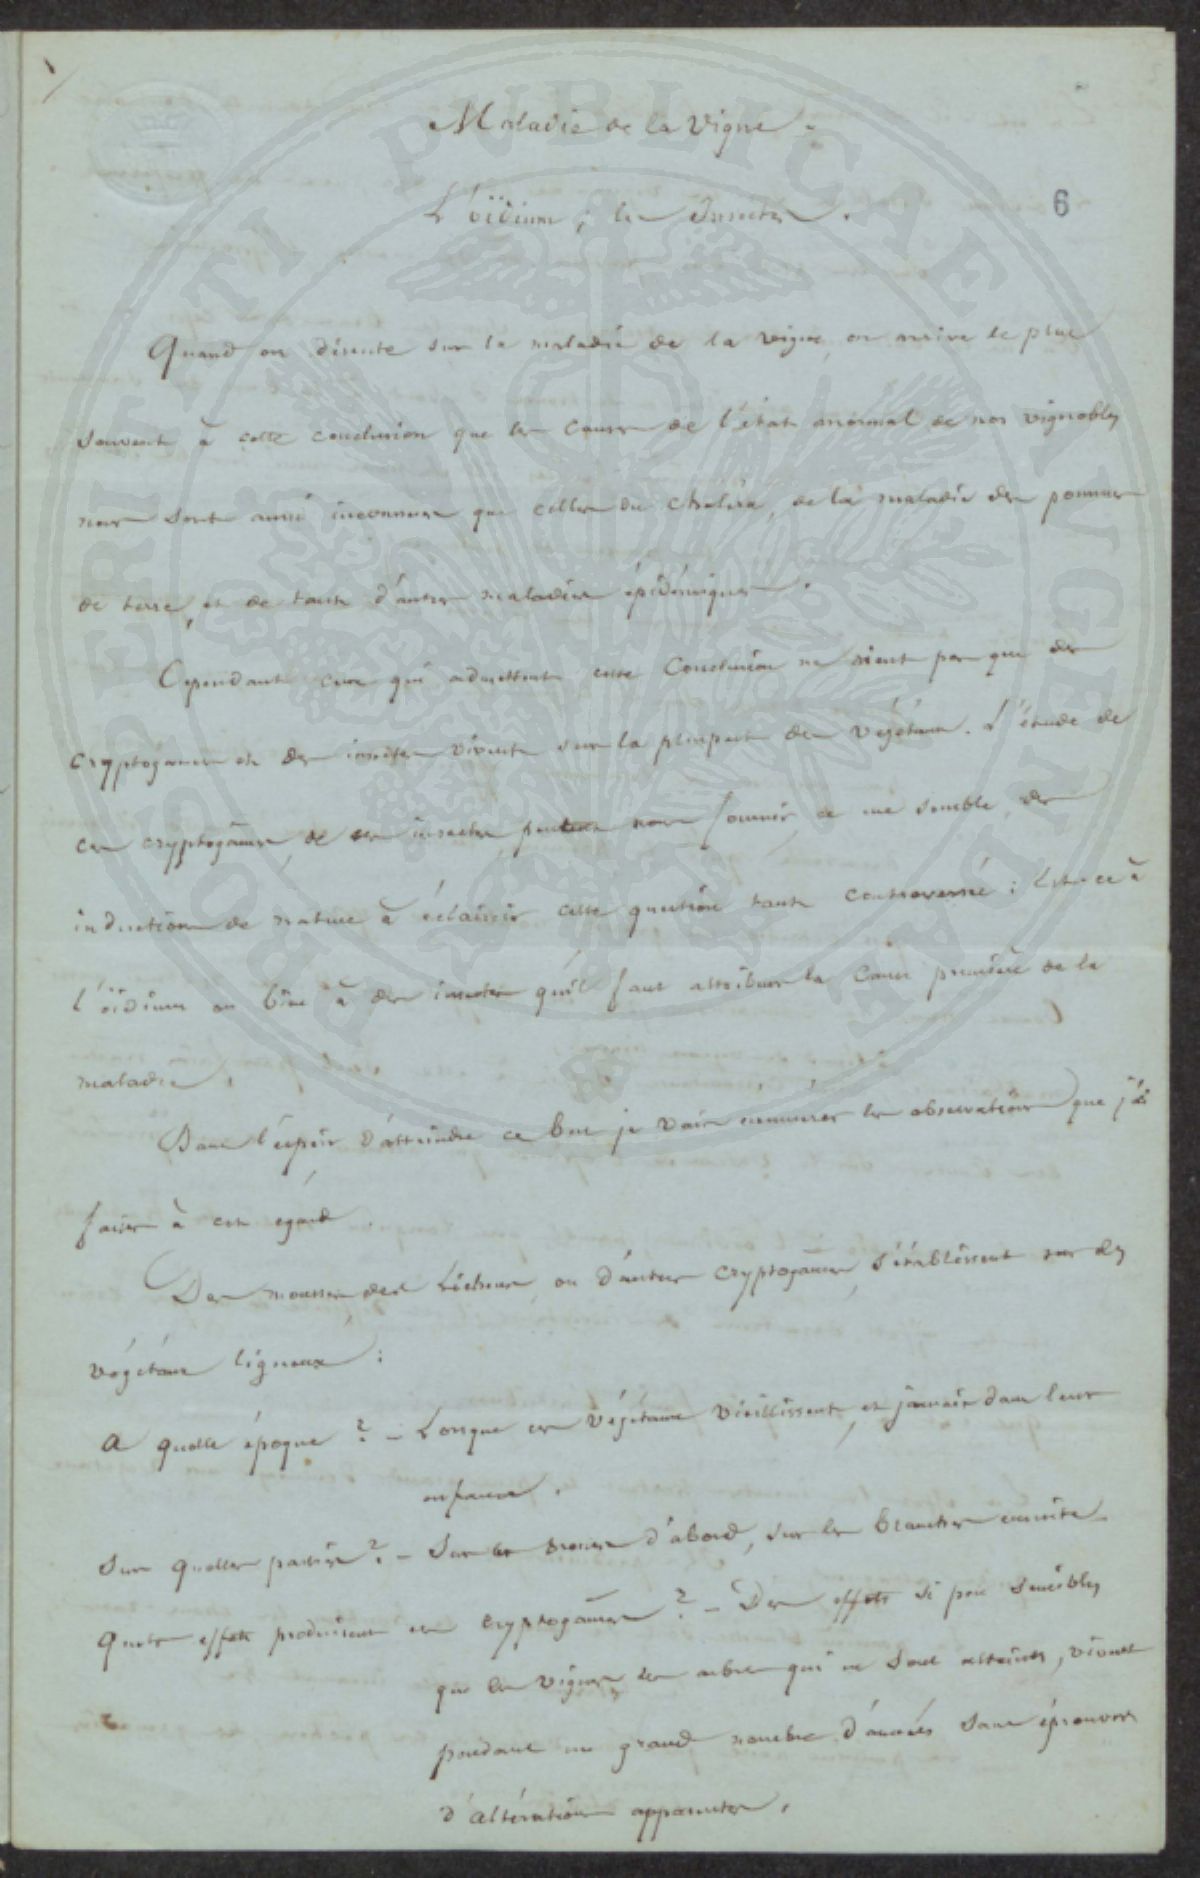 Maladie de la Vigne.
6
L'oïdium ; les Insectes.
Quand on discute sur la maladie de la vigne, on arrive le plus
souvent à cette conclusion que les causes de l'état anormal de nos vignobles
nous sont aussi inconnues que celles du choléra, de la maladie des pommes
de terre, et de tant d'autres maladies épidémiques.
Cependant ceux qui admettent cette conclusion ne nient pas que des
cryptogames et des insectes vivent sur la plupart des végétaux. L'étude de
ces cryptogames, de ces insectes, peut nous fournir, ce me semble, des
inductions de nature à éclaircir cette question tant controversée : Est-ce à
l'oïdium ou bien à des insectes qu'il faut attribuer la cause première de la
maladie.
Dans l'espoir d'atteindre ce but je vais énumérer les observations que j'ai
faites à cet égard.
Des mousses, des Lichens, ou d'autres cryptogames, s'établissent sur des
végétaux ligneux :
A quelle époque ? - Lorsque ces végétaux vieillissent, et jamais dans leur
enfance.
Sur quelles parties ? - Sur les troncs d'abord, sur les branches ensuite.
Quels effets produisent ces cryptogames ? - Des effets si peu sensibles
que les vignes, les arbres qui en sont atteints, vivent
pendant un grand nombre d'années sans éprouver
d'altérations apparentes.